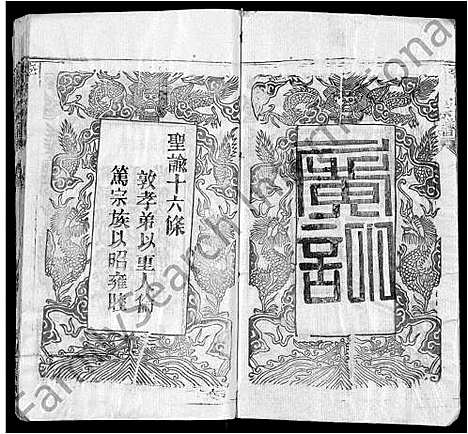 廣訓
聖諭十六條
敦孝弟以重人倫
篤宗族以昭雍睦
Family Search International